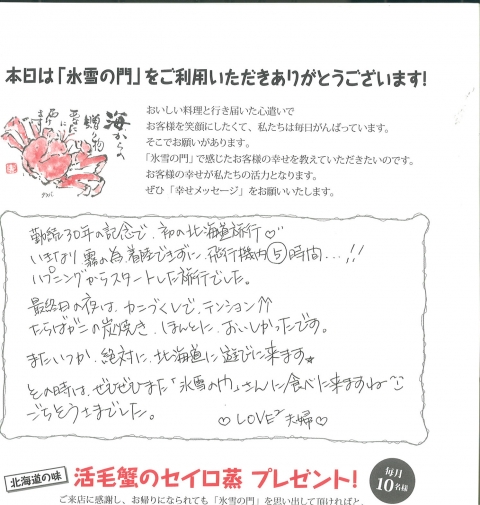 本日は「氷雪の門」をご利用いただきありがとうございます!
海からの
贈り物
おいしい料理と行き届いた心遣いで
お客様を笑顔にしたくて、私たちは毎日がんばっています。
そこでお願いがあります。
「氷雪の門」で感じたお客様の幸せを教えていただきたいのです。
お客様の幸せが私たちの活力となります。
ぜひ「幸せメッセージ」をお願いいたします。
勤続30年の記念で、初の北海道旅行♡
いきなり霧の為、着陸できずに、飛行機内⑤時間...!!
ハプニングからスタートした旅行でした。
最終日の夜は、カニづくしで、テンション↑↑
たらばがにの炭焼き、ほんとに、おいしかったです。
またいつか、絶対に、北海道に遊びに来ます★
その時は、ぜひぜひまた「氷雪の門」さんに食べに来ますね☺
ごちそうさまでした。
♡LOVE²夫婦♡
北海道の味
活毛蟹のセイロ蒸 プレゼント!
毎月
10名様
ご来店に感謝し、お帰りになられても「氷雪の門」を思い出して頂ければと、